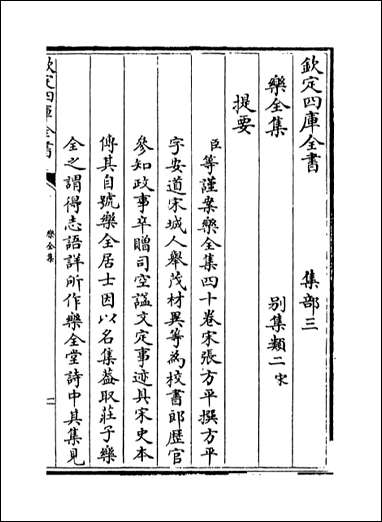 欽定四庫全書
集部三
樂全集
别集類二宋
提要
臣等謹案樂全集四十卷宋張方平撰方平
字安道宋城人舉茂材異等為校書郎歴官
參知政事卒贈司空諡文定事迹具宋史本
傳其自號樂全居士因以名集葢取莊子樂
全之謂得志語詳所作樂全堂詩中其集見
欽定四庫全書
樂全集